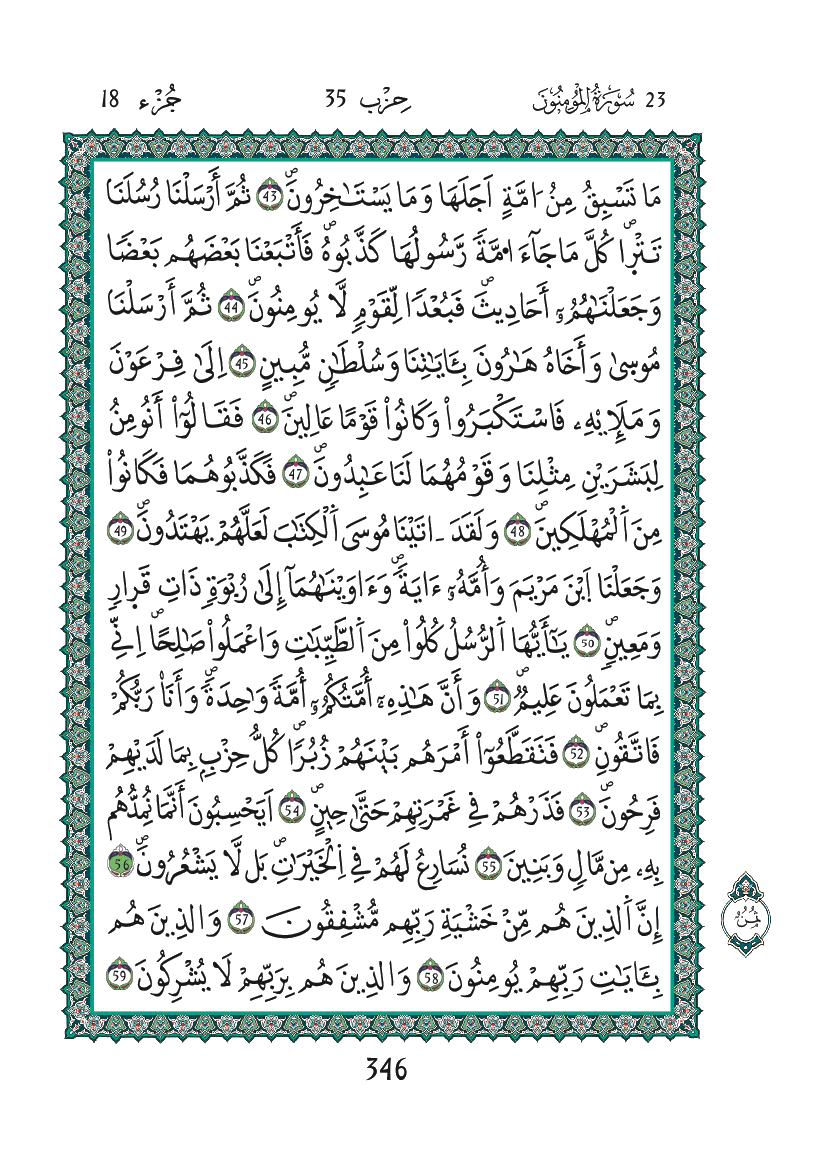 23 سُورَةُ اُلْمُومِنُونَ حِزْب 35 جُزْء 18
مَا تَسْبِقُ مِنُ ا۟مَّةٍ اَجَلَهَا وَمَا يَسْتَـٰخِرُونَۖ 43 ثُمَّ أَرْسَلْنَا رُسُلَنَا
تَتْر۪اۖ كُلَّ مَا جَآءَ ا۟مَّةٗ رَّسُولُهَا كَذَّبُوهُۖ فَأَتْبَعْنَا بَعْضَهُم بَعْضٗا
وَجَعَلْنَـٰهُمُۥٓ أَحَادِيثَۖ فَبُعْدٗا لِّقَوْمٖ لَّا يُومِنُونَۖ 44 ثُمَّ أَرْسَلْنَا
مُوسىٰ وَأَخَاهُ هَـٰرُونَ بِـَٔايَـٰتِنَا وَسُلْطَـٰنٖ مُّبِينٍ 45 اِلَىٰ فِرْعَوْنَ
وَمَلَإِيْهِۦ فَاسْتَكْبَرُواْ وَكَانُواْ قَوْماً عَالِينَۖ 46 فَقَالُوٓاْ أَنُومِنُ
لِبَشَرَيْنِ مِثْلِنَا وَقَوْمُهُمَا لَنَا عَـٰبِدُونَۖ 47 فَكَذَّبُوهُمَا فَكَانُواْ
مِنَ اَ۬لْمُهْلَكِينَۖ 48 وَلَقَدَ ـ اتَيْنَا مُوسَى اَ۬لْكِتَـٰبَ لَعَلَّهُمْ يَهْتَدُونَۖ 49
وَجَعَلْنَا اَ۪بْنَ مَرْيَمَ وَأُمَّهُۥٓ ءَايَةٗۖ وَءَاوَيْنَـٰهُمَآ إِلَىٰ رُبْوَةٖ ذَاتِ قَر۪ارٖ
وَمَعِينٖۖ 50 يَـٰٓأَيُّهَا اَ۬لرُّسُلُ كُلُواْ مِنَ اَ۬لطَّيِّبَـٰتِ وَاعْمَلُواْ صَـٰلِحاًۖ اِنِّے
بِمَا تَعْمَلُونَ عَلِيمٞۖ 51 وَأَنَّ هَـٰذِهِۦٓ أُمَّتُكُمُۥٓ أُمَّةٗ وَٰحِدَةٗۖ وَأَنَا۠ رَبُّكُمْ
فَاتَّقُونِۖ 52 فَتَقَطَّعُوٓاْ أَمْرَهُم بَيْنَهُمْ زُبُراٗۖ كُلُّ حِزْبِۢ بِمَا لَدَيْهِمْ
فَرِحُونَۖ 53 فَذَرْهُمْ فِے غَمْرَتِهِمْ حَتَّىٰ حِينٍۖ 54 اَيَحْسِبُونَ أَنَّمَا نُمِدُّهُم
بِهِۦ مِن مَّالٖ وَبَنِينَ 55 نُسَارِعُ لَهُمْ فِے اِ۬لْخَيْرَٰتِۖ بَل لَّا يَشْعُرُونَۖ 56
إِنَّ اَ۬لذِينَ هُم مِّنْ خَشْيَةِ رَبِّهِم مُّشْفِقُونَ 57 وَالذِينَ هُم
بِـَٔايَـٰتِ رَبِّهِمْ يُومِنُونَ 58 وَالذِينَ هُم بِرَبِّهِمْ لَا يُشْرِكُونَ 59
346